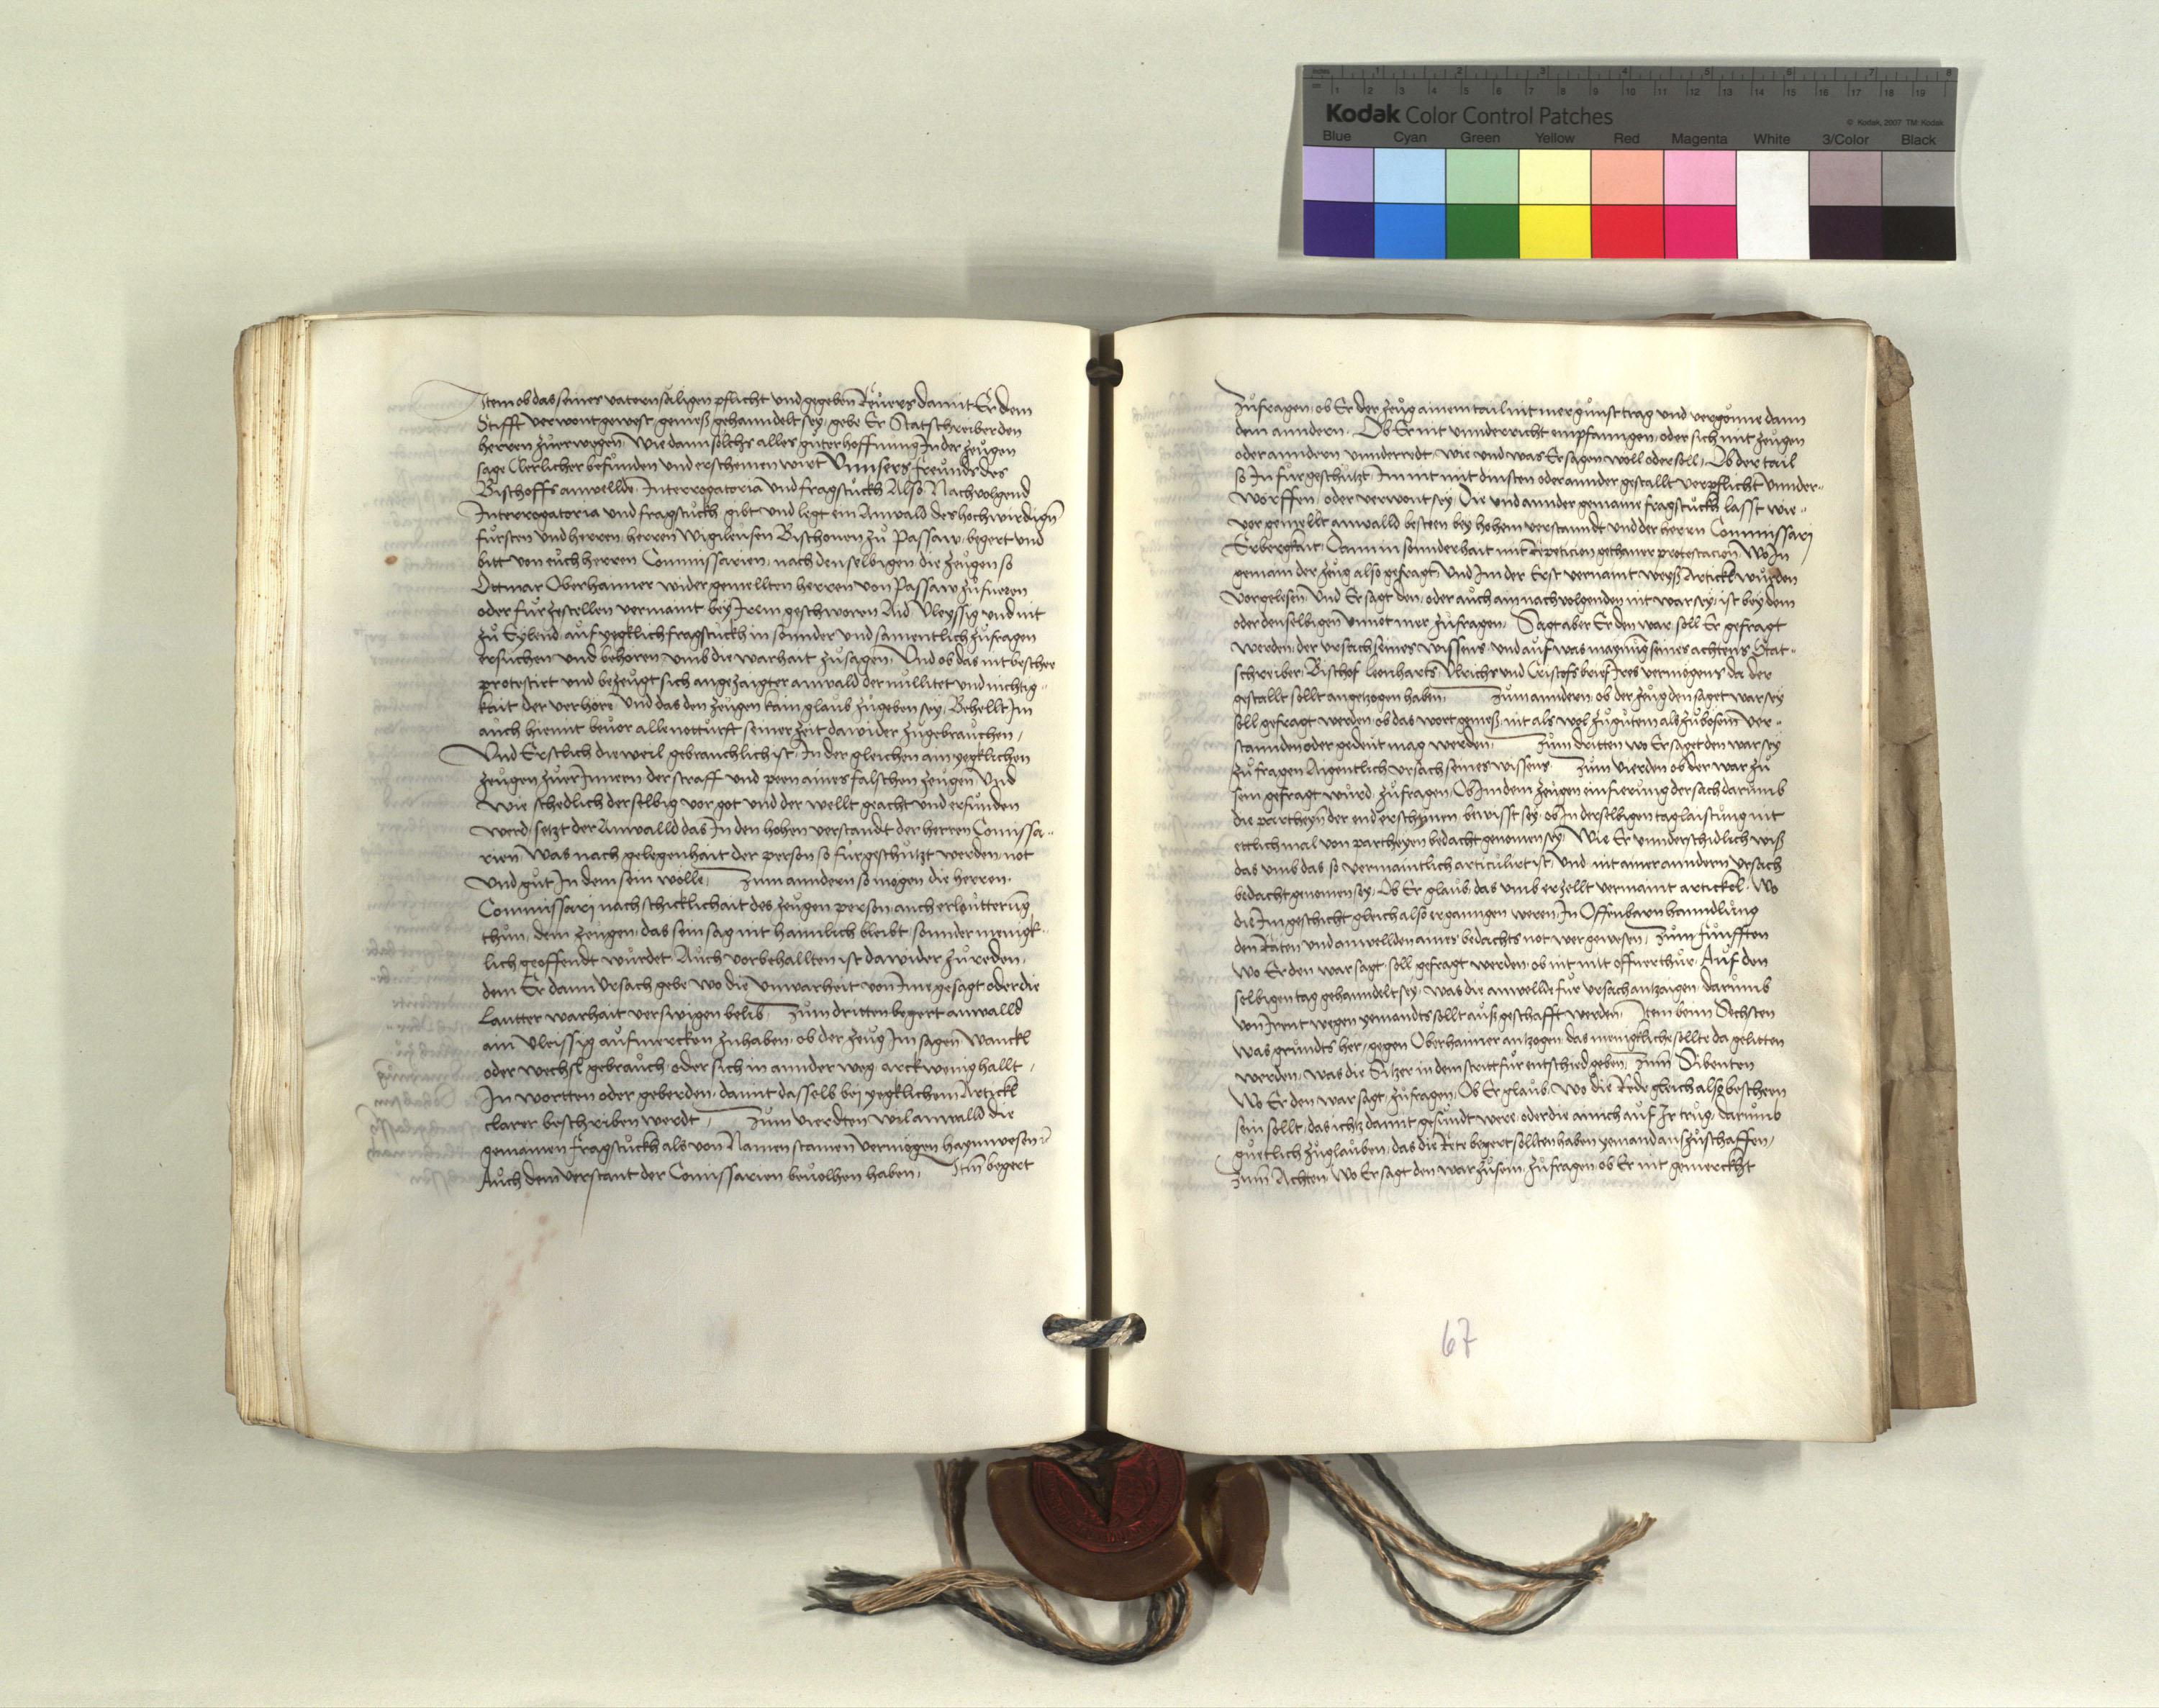 Inches 1 2 3 4 5 6 7 8
cm 1 2 3 4 5 6 7 8 9 10 11 12 13 14 15 16 17 18 19
Kodak Color Control Patches
© Kodak, 2007 TM: Kodak
Blue Cyan Green Yellow Red Magenta White 3/Color Black
Item ob das seines vatern säligen pflicht und gegeben Reuers damit Er dem
Stifft verwont gewest gemeß gehanndelt sey gebe Er Statschreiber den
herren zuerwegen Wie dann solchs alles guter hoffnung In der zeugen
sage Clerlicher befunden und erscheinen wirt Unnsers freunds des
Bischoffs anwellde Interrogatoria und fragstuckh Also Nachvolgend
Interrogatoria und fragstuckh gibt und legt ein Anwald des hochwirdign
fursten und herren herren Wigileusen Bischouen zu Passaw begert und
bitt von euch herren Commissarien nach denselbigen die zeugen so
Ottmar Oberhaimer wider gemellten herren von Passaw zufueren
oder furzestellen vermaint bey Irem geschworen Aid Vleyssig und nit
zu Eylend auf yegklich fragstuckh in sonnder und samentlich zufragen
ersuchen und behoren umb die warhait zusagen Und ob das nit beschee
protestirt und bezeugt sich angezaigter anwald der nullitet und nichtig-
kait der verhöre und das den zeugen kain glaub zugeben sey Behellt Im
auch hiemit beuor alle notturft seiner zeit dawider zugebrauchen
Und Erstlich dieweil gebrauchlich ist In der gleichen ain yegklichen
zeugen zuerInnern der straff und peen aines falschen zeugen Und
Wie schedlich derselbig vor got und der wellt geacht und erfunden
werd setzt der Anwalld das In den hohen verstandt der herren Comissa-
rien Was nach gelegenhait der person so furgeschutzt werden not
und gut In dem sein wölle Zum anndern so mögen die herren
Commissarj nach schicklichait des zeugen person auch erleutterung
thun dem zeugen das sein sag nit haimlich bleibt sonnder menigk-
lich geoffendt wurdet Auch vorbehallten ist dawider zureden
dem Er dann Ursach gebe wo die Unwarheit von Ime gesagt oder die
Lautter warhait verswigen belib Zum dritten begert anwalld
ain Vleissig aufmercken zuhaben ob der zeug Im sagen Wanckl
oder wechsl gebrauch oder sich in annder weg arckwenig hallt
In wortten oder geberden damit dasselb bei yegklichem Artickl
clarer beschriben werdt Zum Vierdten wil anwalld die
gemainen fragstuckh als von Namen stamen vermögen haymwesen
Auch dem verstant der Comissarien beuolhen haben Item begert
Zufragen ob Er der zeug ainem tail nit mer gunst trag und vergönne dann
dem anndern Ob Er nit unnderricht empfanngen oder sich mit zeugen
oder anndern unnderredt wie und was Er sagen woll oder soll Ob der tail
so In furgeschutzt Im nit mit dinsten oder annder gestallt verpflicht unnder-
worffen oder verwont sey Die und annder gemaine fragstuckh lasst wie-
vor gemellt anwalld besteen bey hohem verstanndt und der herrn Commissarj
Erbergkait Dann in sonnderhait mit Repeticion gethaner protestacion Wo In
gemain der zeug also gefragt Und Im der Erst vermaint weyß Artickl wurden
Vorgelesen Und Er sagt den oder auch ain nachvolgenden nit war sey ist bey dem
oder denselbigen unnot mer zufragen Sagt aber Er den war soll Er gefragt
werden der ursach seines wissens und auf was maynung seines achtens Stat-
schreiber Bischof Leonharts Ulrichs und Cristofs brief Ires vermögens da der
gestallt sollt angetzogen haben Zum anndern ob der zeug den saget war sey
soll gefragt werden ob das wort gemeß nit als wol zugutem als zubösem ver-
stannden oder gedeut mag werden Zum dritten wo Er saget den war sey
zufragen Aigentlich ursach seines wissens Zum Vierden ob der war zu
sein gefragt wurd zufragen Ob Im dem zeugen einfierung der sach darumb
die partheyn der end erschynen bewisst sey ob In derselbigen taglaistung nit
ettlich mal von partheyen bedacht genomen sey Wie Er unnderschidlich wiß
das umb das so vermaintlich articulirt ist Und nit ainer anndern ursach
bedacht genomen sey Ob Er glaub das umb erzellt vermaint artickel Wo
die Im geschicht gleich also erganngen weren In Offenbarn hanndlung
den Räten und anwellden aines bedachts not wer gewesen Zum funfften
Wo Er den war sagt soll gefragt werden ob nit mit offner thur Auf den
selbigen tag gehanndelt sey Was die anwellde fur ursach antzaigen darumb
von Irent wegen yemandts sollt auß geschafft werden Item beim Sechsten
Was grundts her gegen Oberhaimer antzogen das menigkliche sollte da gelitten
werden Was die Sitzer in dem stritt fur entschied geben Zum Sibenten
Wo Er den war sagt zufragen Ob Er glaub Wo die Rede gleich also bescheen
sein sollt das ichtz damit gesundt were oder die amich auf Ir trug darumb
guetlich zuglauben das die Rete begert sollten haben yemand auszuschaffen
Zum Achten Wo Er sagt den war zusein zufragen ob Er nit gemerckht
67